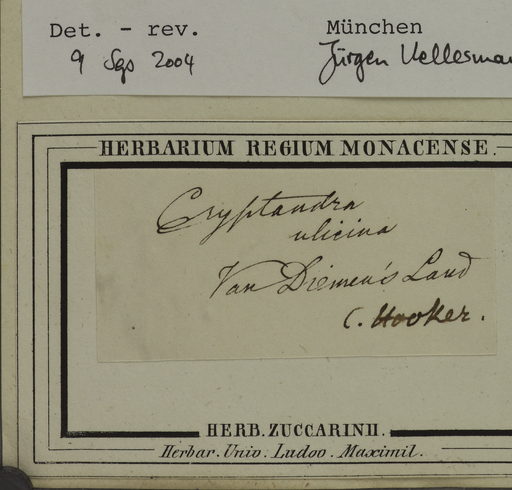 Det. - rev. München
9 Sep 2004 Jürgen Kellerman
HERBARIUM REGIUM MONACENSE.
Cryptandra
ulicina
Van Diemen's Land
C. Hooker.
HERB. ZUCCARINII.
Herbar. Univ. Ludov. Maximil.